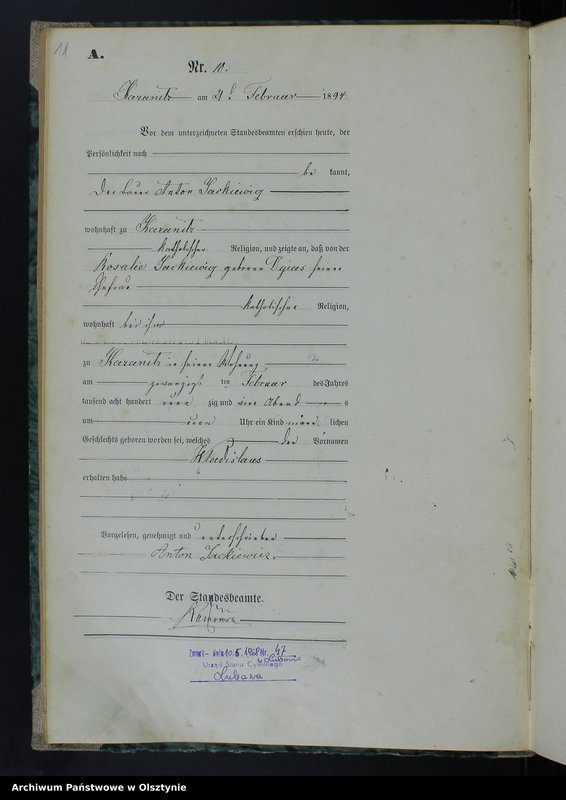 11
A.
Nr. 10.
Kazanitz am 21. Februar 1894.
Vor dem unterzeichneten Standesbeamten erschien heute, der
Persönlichkeit nach
be kannt,
Der Bauer Anton Jackiewiz
wohnhaft zu Kazanitz
katholischer Religion, und zeigte an, daß von der
Rosalie Jackiewiz geborenen seiner
Ehefrau
katholischer Religion,
wohnhaft bei ihm
zu Kazanitz in seiner Wohnung
am zwanzigs ten Februar des Jahres
tausend acht hundert neun zig und vier Abend s
um neun Uhr ein Kind männ lichen
Geschlechts geboren worden sei, welches den Vornamen
Wladislaus
erhalten habe
Vorgelesen, genehmigt und unterschrieben
Anton Jackiewicz.
Der Standesbeamte.
Urząd Stanu Cywilnego
w Lubawie
Lubawa
Archiwum Państwowe w Olsztynie